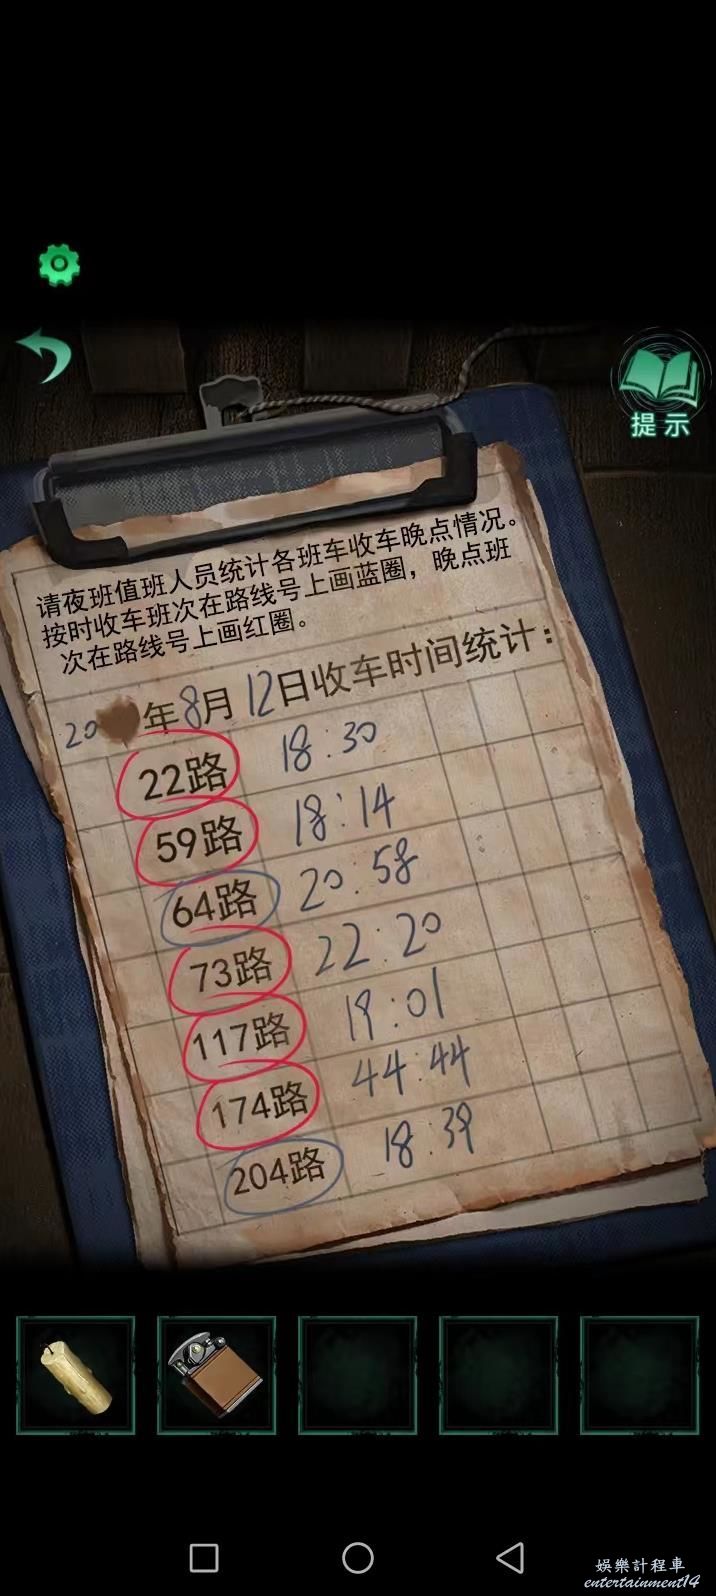 提示
请夜班值班人员统计各班车收车晚点情况。
按时收车班次在路线号上画蓝圈，晚点班
次在路线号上画红圈。
20 年8月12日收车时间统计：
22路 18:30
59路 18:14
64路 20:58
73路 22:20
117路 19:01
174路 44:44
204路 18:39
娛樂計程車
entertainment14